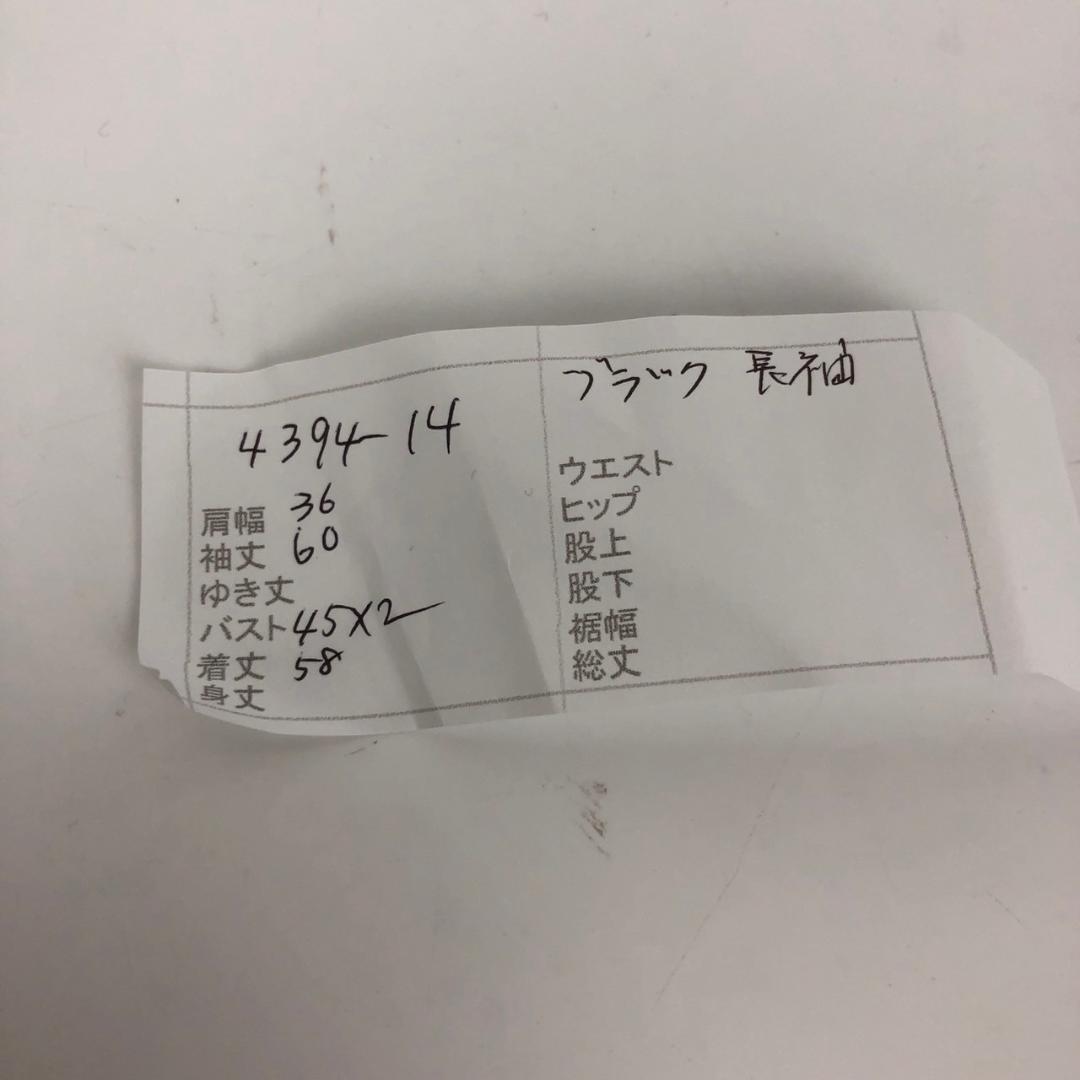 4394-14
肩幅 36
袖丈 60
ゆき丈
バスト 45×2
着丈 58
身丈
ブラック 長袖
ウエスト
ヒップ
股上
股下
裾幅
総丈